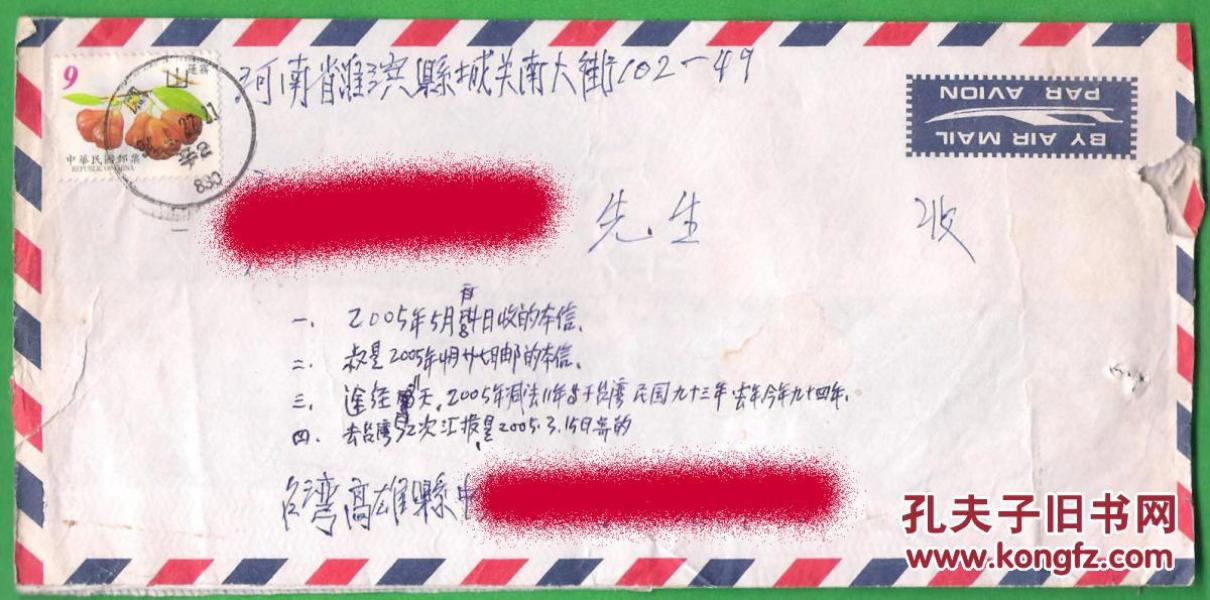 9
蓮霧
中華民國郵票
REPUBLIC OF CHINA
山
830
河南省淮滨縣城关南大街102-49
PAR AVION
BY AIR MAIL
先生 收
一. 2005年5月8日收的本信.
二. 叔是2005年4月廿七日邮的本信.
三. 途经11天.2005年减去11年等于台湾民国九十三年.去年今年九十四年.
四. 去台湾52次汇报是2005.3.15日寄的
台湾高雄縣
孔夫子旧书网
www.kongfz.com